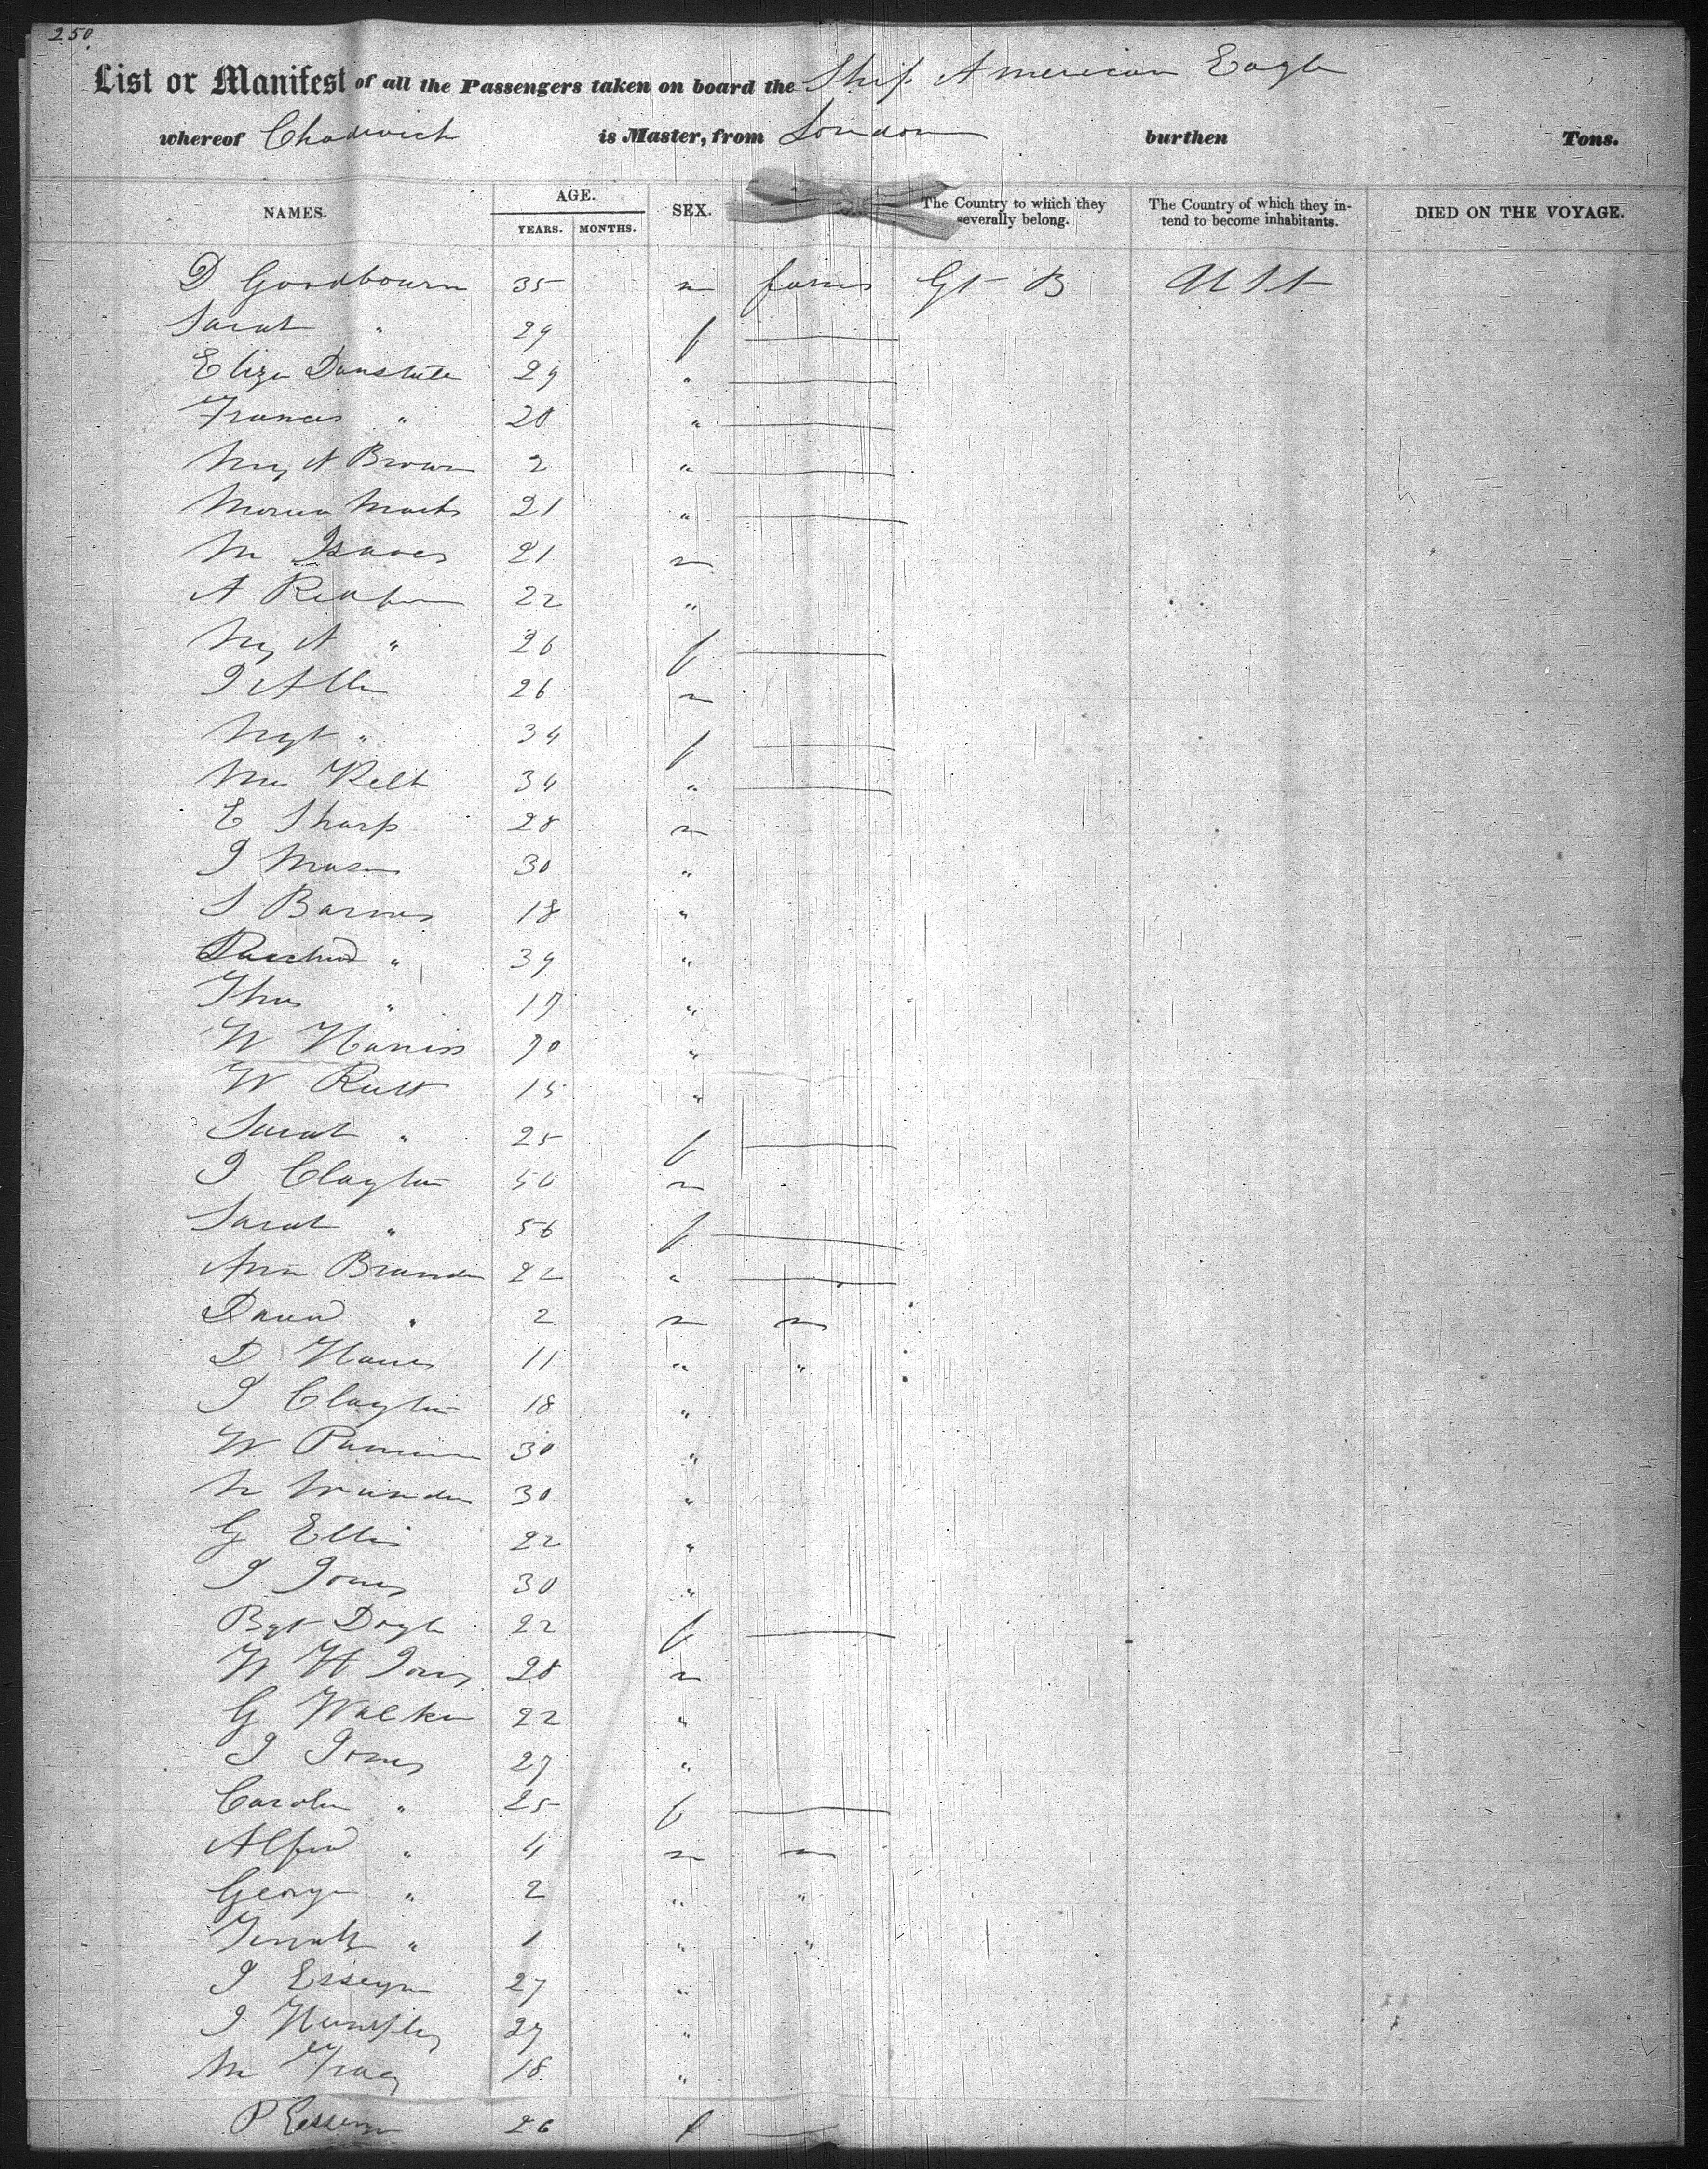 250.
List or Manifest of all the Passengers taken on board the Ship American Eagle
whereof Chadwick is Master, from London burthen Tons.
NAMES. AGE. YEARS. MONTHS. SEX. The Country to which they severally belong. The Country of which they intend to become inhabitants. DIED ON THE VOYAGE.
D Goodbourn 35 m Gt B U St
Sarah " 29 f
Eliza 29 "
Frances " 20 "
A Brown 2 "
Maria 21 "
M Isaacs 21 m
A 22 "
A " 26 f
J Allen 26 m
Mgt " 34 f
34 "
E Sharp 28 m
J Mason 30 "
S Barnes 18 "
" 39 "
Thos " 17 "
W Harriss 70 "
W Rutt 15 "
Sarah " 25 f
J Clayton 50 m
Sarah " 56 f
Ann 22 "
David " 2 m m
D 11 " "
J Clayton 18 "
W 30 "
30 "
G Ellis 22 "
J Jones 30 "
Bgt Doyle 22 f
W H 28 m
G Walker 22 "
J Jones 27 "
Caroline " 25 f
Alfred " 4 m m
George " 2 " "
" 1 " "
J 27 "
J 27 "
M Tracy 18 "
P 26 f